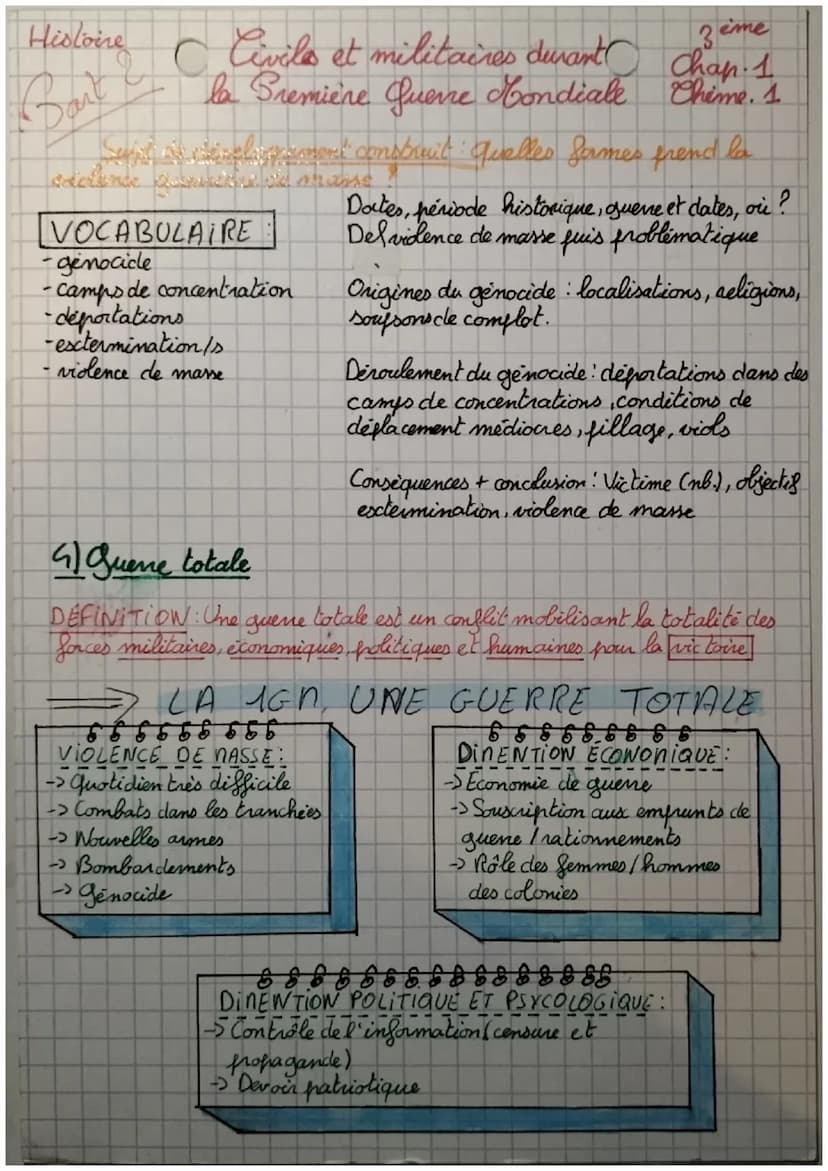 Histoire
Part 2
Civils et militaires durant
la Première Guerre Mondiale
3ème
Chap. 1
Thème. 1
Sujet de développement construit : Quelles formes prend la
violence de masse ?
VOCABULAIRE :
- génocide
- camps de concentration
- déportations
- extermination/s
- violence de masse
Dates, période historique, guerre et dates, où ?
Def violence de masse puis problématique
Origines du génocide : localisations, religions,
soupsons de complot.
Déroulement du génocide : déportations dans des
camps de concentrations, conditions de
déplacement médiocres, pillage, viols
Conséquences + conclusion : Victime (nb.), objectif
extermination, violence de masse
4) Guerre totale
DÉFINITION : Une guerre totale est un conflit mobilisant la totalité des
forces militaires, économiques, politiques et humaines pour la victoire
LA 1GM, UNE GUERRE TOTALE
VIOLENCE DE MASSE :
-> Quotidien très difficile
-> Combats dans les tranchées
-> Nouvelles armes
-> Bombardements
-> Génocide
DIMENTION ÉCONOMIQUE :
-> Economie de guerre
-> Souscription aux emprunts de
guerre / rationnements
-> Rôle des femmes / hommes
des colonies
DIMENTION POLITIQUE ET PSYCOLOGIQUE :
-> Contrôle de l'information (censure et
propagande)
-> Devoir patriotique